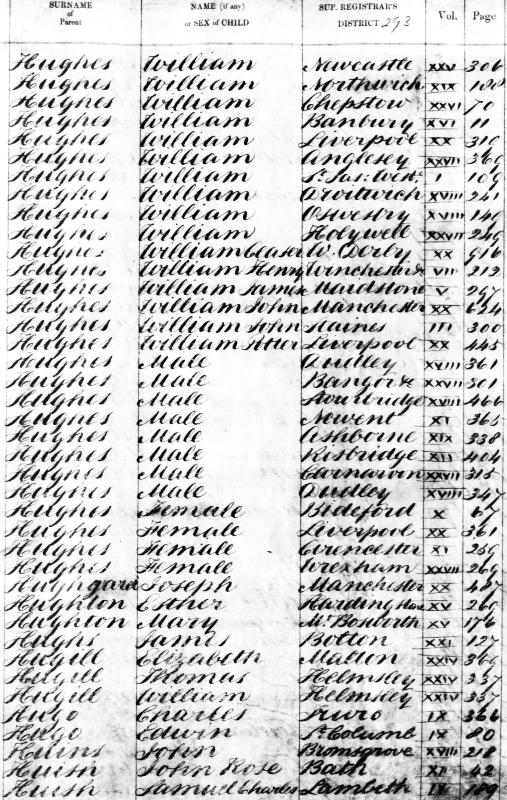 SURNAME of Parent NAME (if any) or SEX of CHILD SUP. REGISTRAR'S DISTRICT 293 Vol. Page
Hughes William Newcastle XXV 306
Hughes William Northwich XIX 188
Hughes William Chepstow XXVI 70
Hughes William Banbury XVI 11
Hughes William Liverpool XX 310
Hughes William Anglesey XXVII 360
Hughes William St Jas: West: 1 109
Hughes William Droitwich XVIII 241
Hughes William Oswestry XVIII 140
Hughes William Holywell XXVII 249
Hughes William Ceaser W. Derby XX 916
Hughes William Henry Winchester VII 212
Hughes William James Maidstone V 297
Hughes William John Manchester XX 624
Hughes William John Staines III 300
Hughes William Potter Liverpool XX 445
Hughes Male Dudley XVIII 361
Hughes Male Bangor &c XXVII 301
Hughes Male Stourbridge XVIII 466
Hughes Male Newent XI 365
Hughes Male Ashborne XIX 338
Hughes Male Risbridge XII 404
Hughes Male Carnarvon XXVII 315
Hughes Male Dudley XVIII 347
Hughes Female Bideford X 67
Hughes Female Liverpool XX 361
Hughes Female Cirencester XI 259
Hughes Female Wrexham XXVII 269
Hughgard Joseph Manchester XX 487
Hughton Esther Hardingstone XV 260
Hughton Mary Mt Bosworth XV 176
Hughs James Bolton XXI 127
Hugill Elizabeth Malton XXIV 366
Hugill Thomas Helmsley XXIV 337
Hugill William Helmsley XXIV 337
Hugo Charles Truro IX 366
Hugo Edwin St Columb IX 80
Huins John Bromsgrove XVIII 218
Huish John Rose Bath XI 42
Huish Samuel Charles Lambeth IV 189